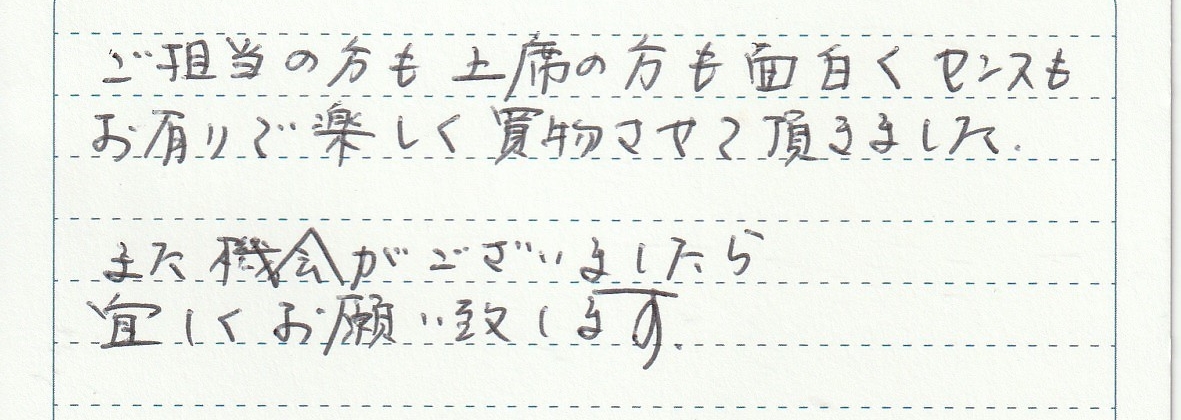 ご担当の方も上席の方も面白くセンスも
お有りで楽しく買物させて頂きました.
また機会がございましたら
宜しくお願い致します.